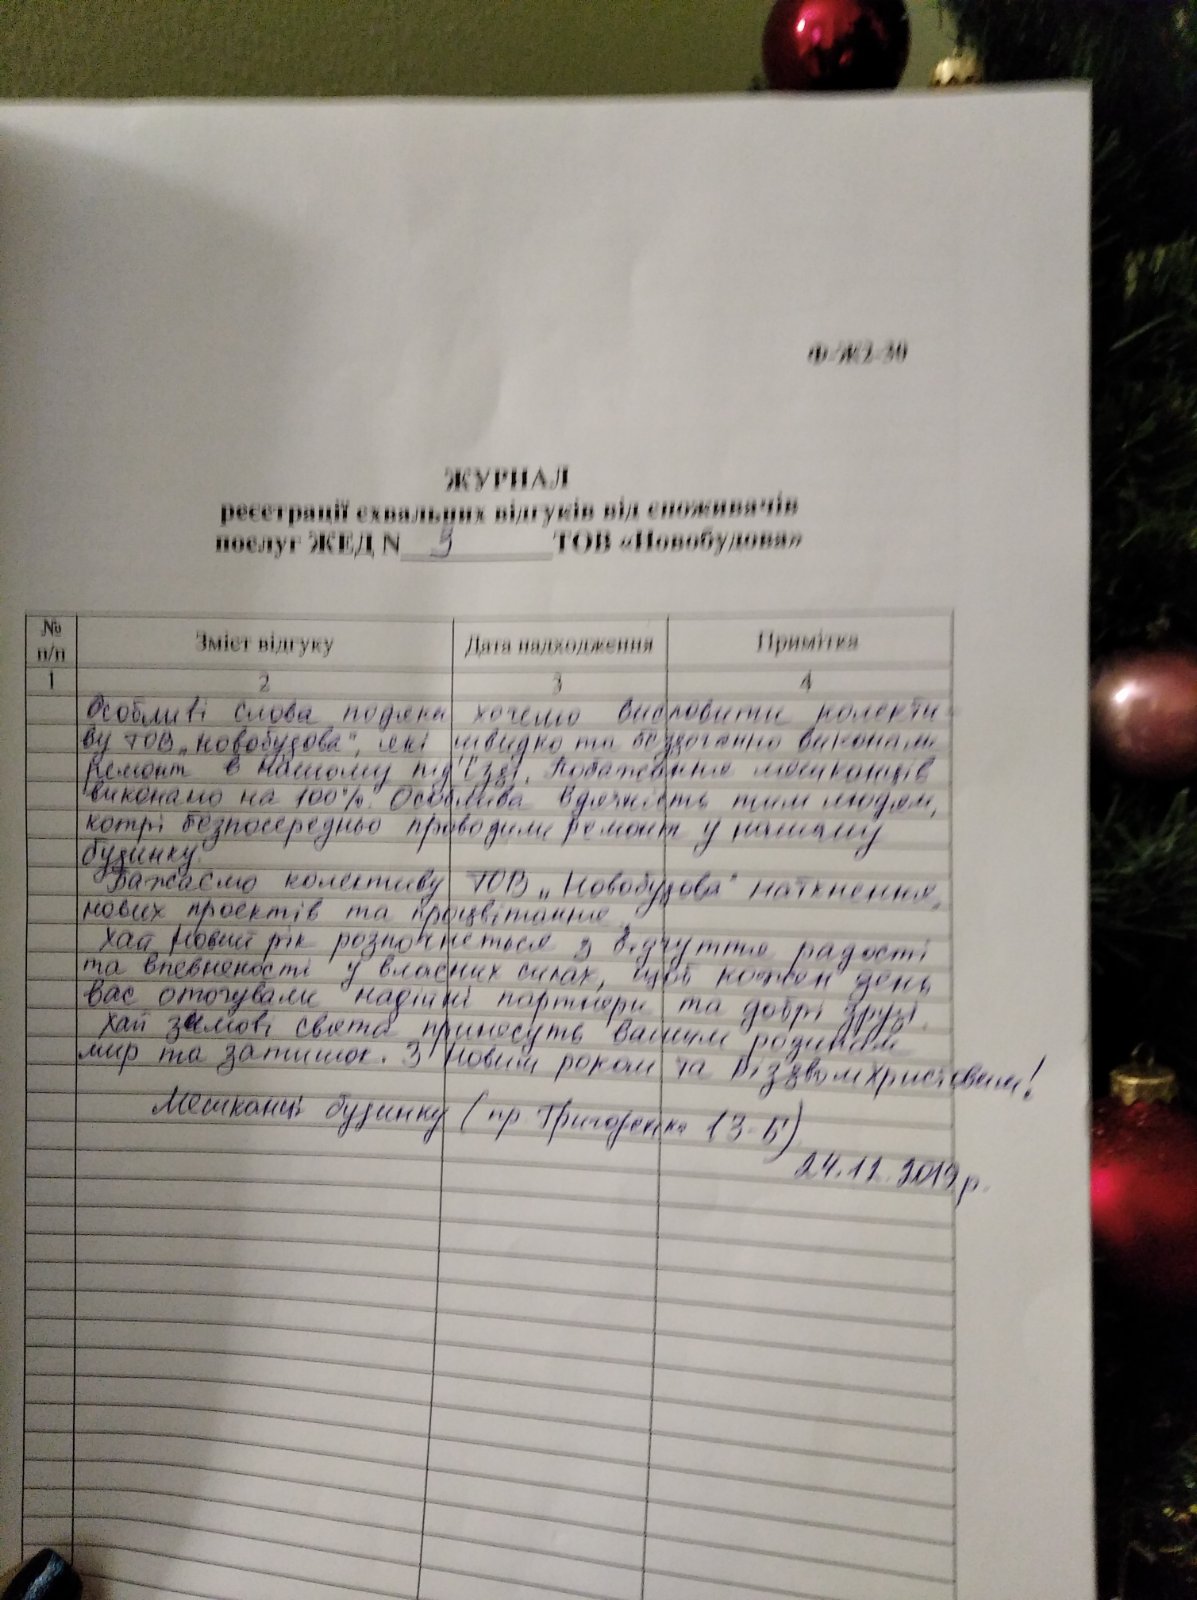 Ф-Ж2-30
ЖУРНАЛ
реєстрації схвальних відгуків від споживачів
послуг ЖЕД N 9 ТОВ «Новобудова»
№ п/п Зміст відгуку Дата надходження Примітка
1 2 3 4
Особливі слова подяки хочемо висловити колекти
ву ТОВ „Новобудова", які швидко та бездоганно виконали
ремонт в нашому під'їзді. Побажання мешканців
виконано на 100%. Особлива вдячність тим людям,
котрі безпосередньо проводили ремонт у нашому
будинку.
Бажаємо колективу ТОВ „Новобудова" натхнення,
нових проектів та процвітання.
Хай Новий рік розпочнеться з відчуття радості
та впевненості у власних силах, щоб кожен день
Вас оточували надійні партнери та добрі друзі.
Хай зимові свята принесуть Вашим родинам
мир та затишок. З Новим роком та Різдвом Христовим!
Мешканці будинку (пр. Григоренка 13-Б)
24.12.2019р.